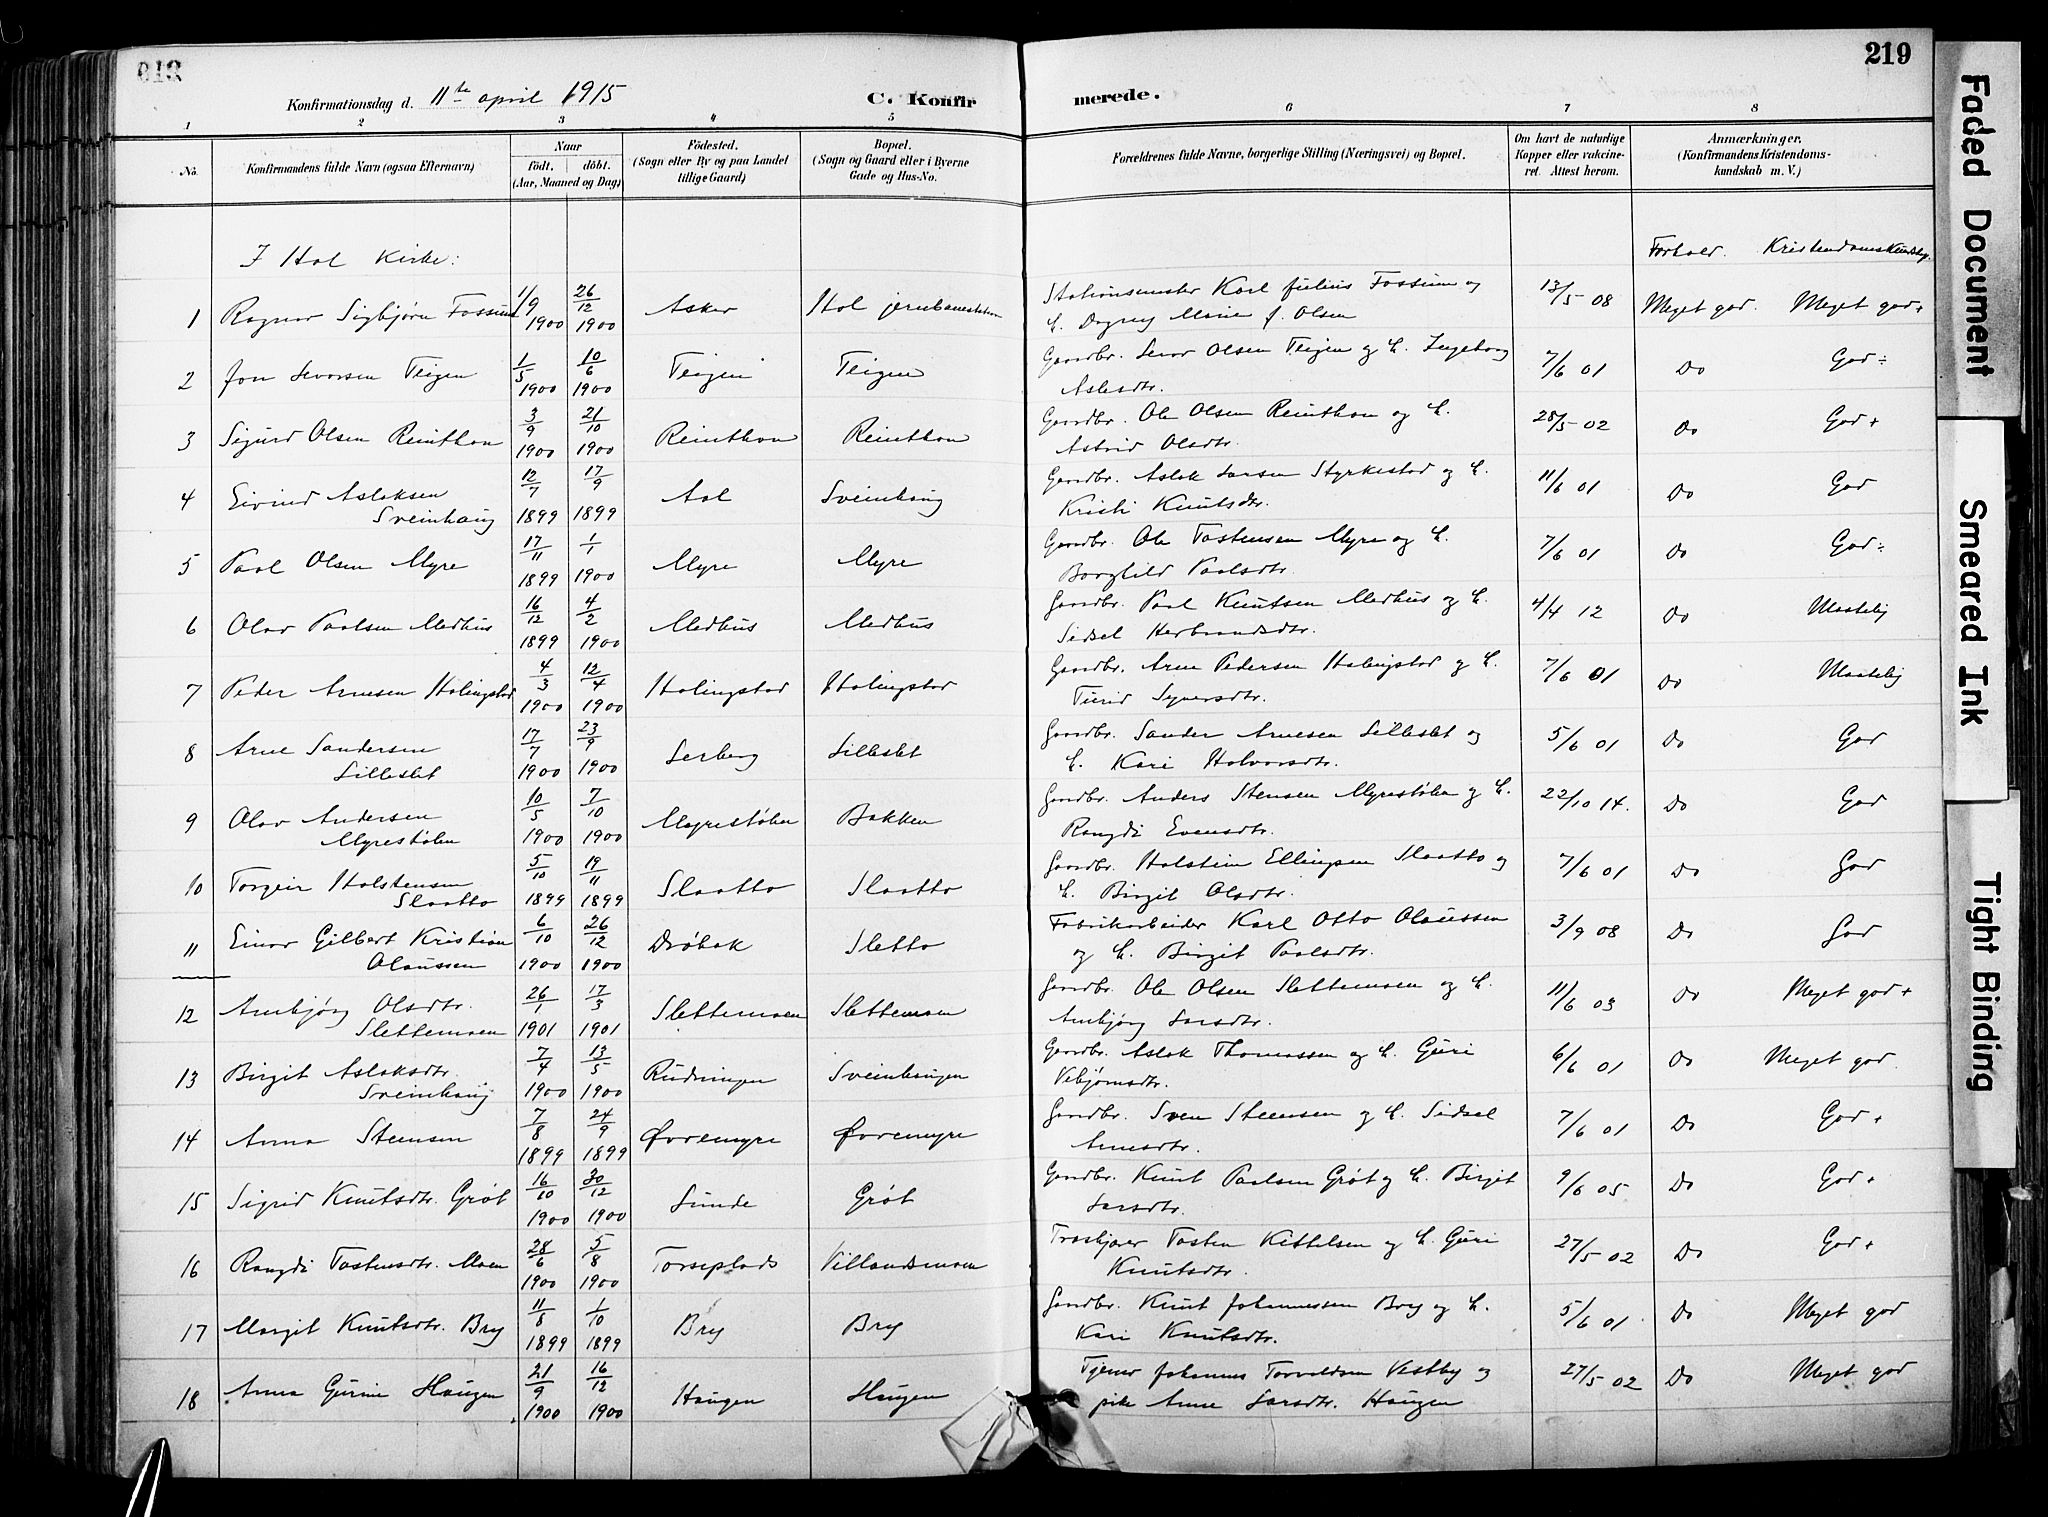 219
Konfirmationsdag d. 11te april 1915
C. Konfirmerede.
1 2 3 4 5 6 7 8
No.
Konfirmandens fulde Navn (ogsaa Efternavn)
Naar
født. døbt.
(Aar, Maaned og Dag)
Fødested.
(Sogn eller By og paa Landet
tillige Gaard)
Bopæl.
(Sogn og Gaard eller i Byerne
Gade og Hus-No.
Forældrenes fulde Navne, borgerlige Stilling (Næringsvei) og Bopæl.
Om havt de naturlige
Kopper eller vakcine-
ret. Attest herom.
Anmærkninger,
(Konfirmandens Kristendoms-
kundskab m. V.)
I Hol Kirke:
Forhold. Kristendomskundskap.
1 Ragnar Sigbjørn Fossum 1/9 1900 26/12 1900 Asker Hol jernbanestation Stationsmester Karl Julius Fossum og
h. Dagny Marie f. Olsen 13/5 08 Meget god. Meget god+
2 Jon Sevorsen Teigen 1/5 1900 10/6 1900 Teigen Teigen Gaardbr. Sevor Olsen Teigen og h. Ingeborg
Aslesdtr. 7/6 01 Do God÷
3 Sigurd Olsen Reinthon 3/9 1900 21/10 1900 Reinthon Reinthon Gaardbr. Ole Olsen Reinthon og h.
Astrid Olsdtr. 28/5 02 Do God+
4 Eivind Aslaksen
Sveinhaug 12/7 1899 17/9 1899 Aal Sveinhaug Gaardbr. Aslak Larsen Styrkestad og h.
Kristi Knutsdtr. 11/6 01 Do God
5 Paal Olsen Myre 17/11 1899 1/1 1900 Myre Myre Gaardbr. Ole Tostensen Myre og h.
Borghild Paalsdtr. 7/6 01 Do God÷
6 Olav Paalsen Medhus 16/12 1899 4/2 1900 Medhus Medhus Gaardbr. Paal Knutsen Medhus og h.
Sidsel Herbrandsdtr. 4/4 12 Do Maatelig
7 Peder Arnesen Holingstad 4/3 1900 12/4 1900 Holingstad Holingstad Gaardbr. Arne Pedersen Holingstad og h.
Turid Syversdtr. 7/6 01 Do Maatelig
8 Arne Sandersen
Lilleslet 17/7 1900 23/9 1900 Lerberg Lilleslet Gaardbr. Sander Arnesen Lilleslet og
h. Kari Halvorsdtr. 5/6 01 Do God
9 Olav Andersen
Myrestølen 10/5 1900 7/10 1900 Myrestølen Bakken Gardbr. Anders Stensen Myrestølen og h.
Rangdi Evensdtr. 22/10 14. Do God
10 Torgeir Holstensen
Slaatto 5/10 1899 19/11 1899 Slaatto Slaatto Gaardbr. Holstein Ellingsen Slaatto og
h. Birgit Olsdtr. 7/6 01 Do God
11 Einar Gilbert Kristian
Olaussen 6/10 1900 26/12 1900 Drøbak Sletto Fabrikarbeider Karl Otto Olaussen
og h. Birgit Paalsdtr. 3/9 08 Do God
12 Ambjørg Olsdtr.
Slettemoen 26/1 1901 17/3 1901 Slettemoen Slettemoen Gardbr. Ole Olsen Slettemoen og h.
Ambjørg Larsdtr. 11/6 03 Do Meget god+
13 Birgit Aslaksdtr.
Sveinhaug 7/4 1900 13/5 1900 Rudningen Sveinhaugen Gardbr. Aslak Thomassen og h. Guri
Vebjørnsdtr. 6/6 01 Do Meget god
14 Anna Steensen 7/8 1899 24/9 1899 Øvremyre Øvremyre Gardbr. Sven Steensen og h. Sidsel
Arnesdtr. 7/6 01 Do God+
15 Sigrid Knutsdtr. Grøt 16/10 1900 30/12 1900 Sunde Grøt Gardbr. Knut Paalsen Grøt og h. Birgit
Larsdtr. 9/6 05 Do God+
16 Rangdi Tostensdtr. Moen 28/6 1900 5/8 1900 Torseplads Villandsmoen Tosten Kittelsen og h. Guri
Knutsdtr. 27/5 02 Do God+
17 Margit Knutsdtr. Bry 11/8 1899 1/10 1899 Bry Bry Gardbr. Knut Johannessen Bry og h.
Kari Knutsdtr. 5/6 01 Do Meget god
18 Anna Gurine Haugen 21/9 1900 16/12 1900 Haugen Haugen Tjener Johannes Torvaldsen Vestby og
pike Anne Larsdtr. Haugen 27/5 02 Do Meget god
Faded Document
Smeared Ink
Tight Binding